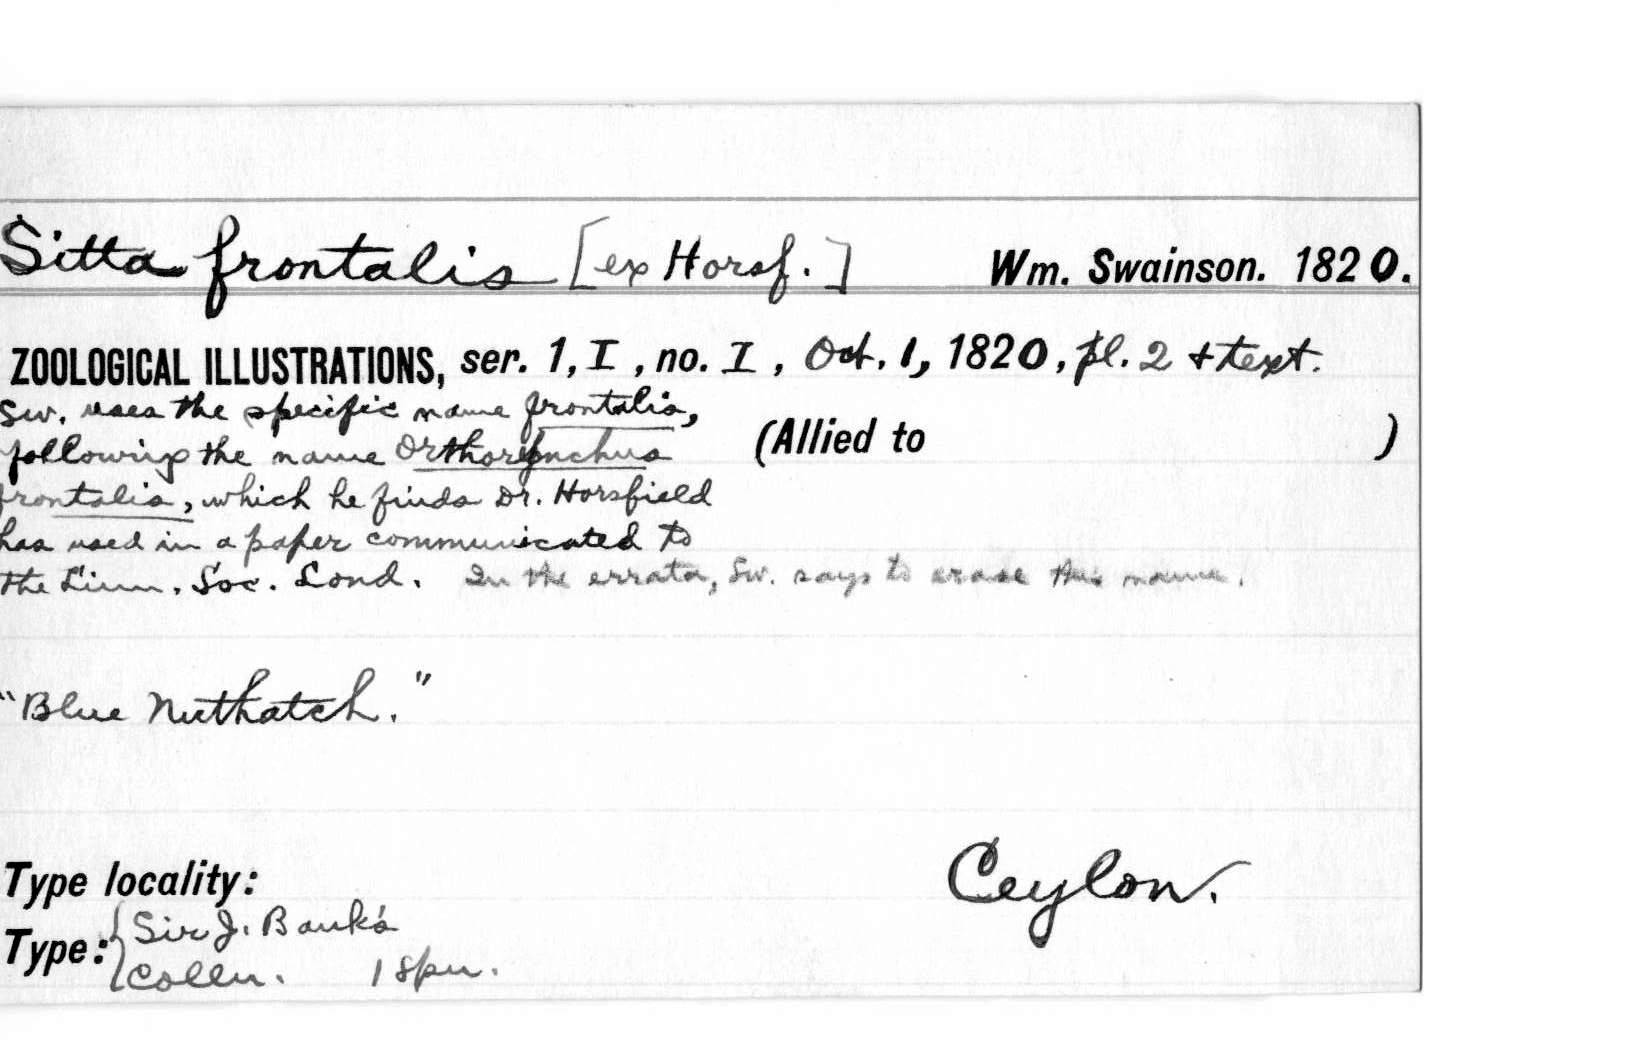 Sitta frontalis [ex Horsf.] Wm. Swainson. 1820.
ZOOLOGICAL ILLUSTRATIONS, ser. 1, I, no. I, Oct. 1, 1820, pl. 2 + text.
Sw. uses the specific name frontalis,
following the name Orthorynchus (Allied to )
frontalis, which he finds Dr. Horsfield
has used in a paper communicated to
the Linn. Soc. Lond. In the errata, Sw. says to erase this name.
"Blue Nuthatch."
Type locality: Ceylon.
Type: { Sir J. Bank's
Colln. 1 spn.